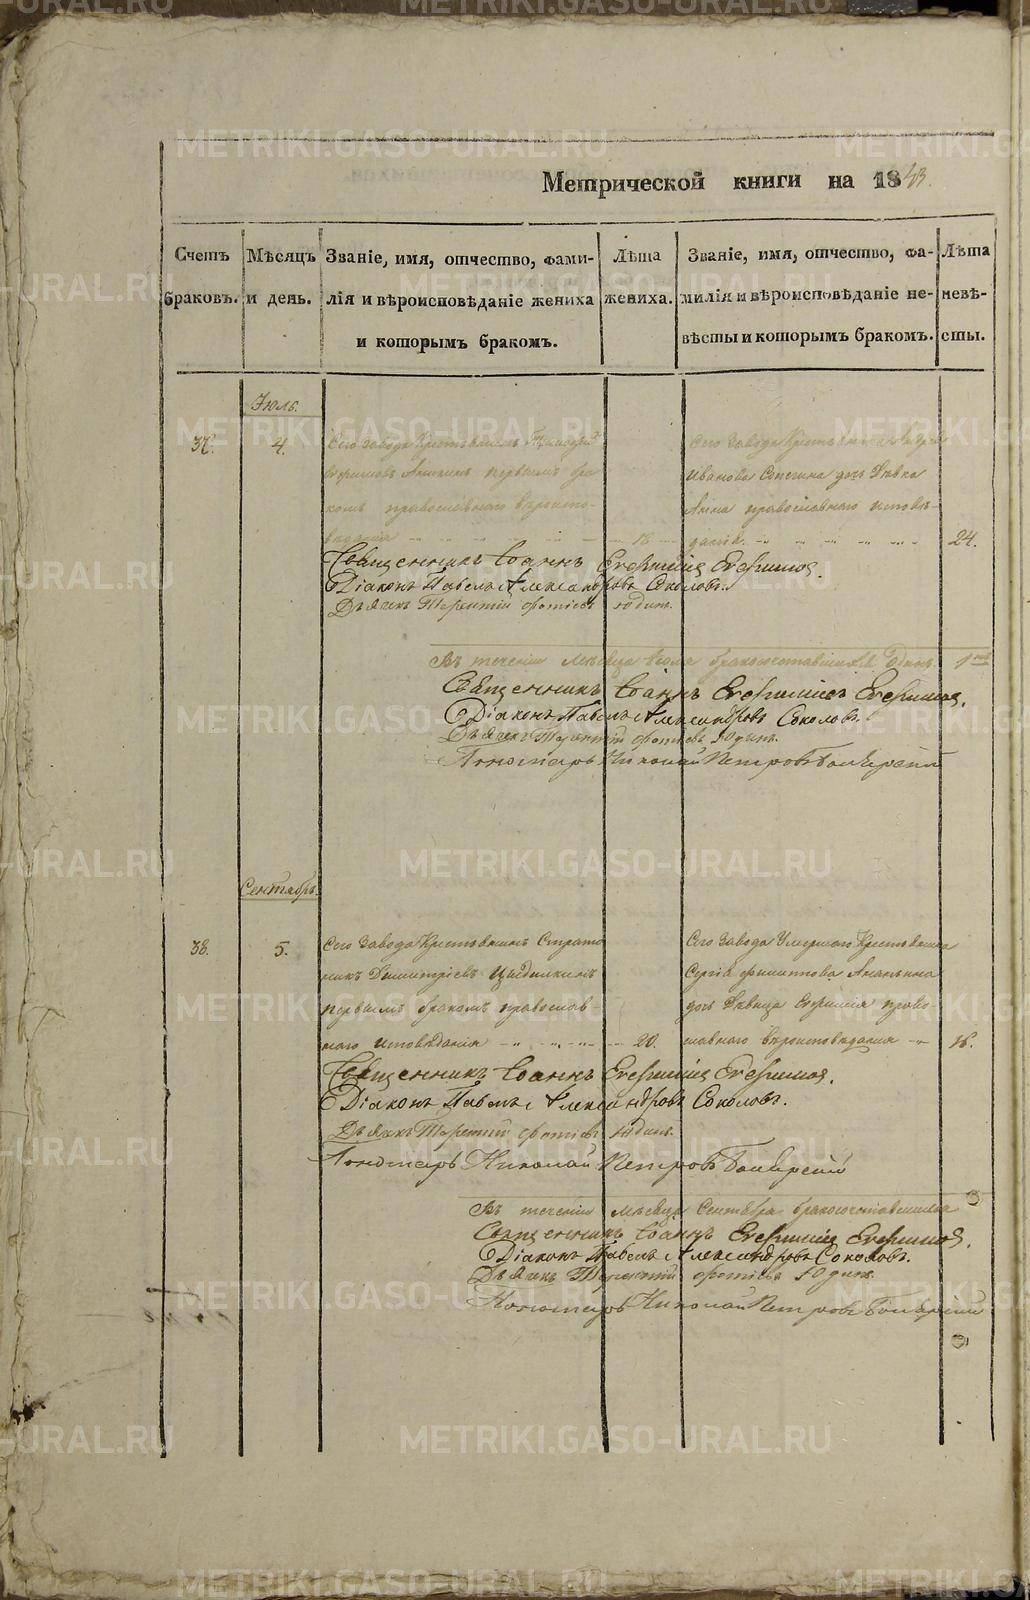 Метрической книги на 1843.
Счетъ браковъ.
Мѣсяцъ и день.
Званіе, имя, отчество, фами-
лія и вѣроисповѣданіе жениха
и которымъ бракомъ.
Лѣта жениха.
Званіе, имя, отчество, фа-
милія и вѣроисповѣданіе не-
вѣсты и которымъ бракомъ.
Лѣта невѣ-
сты.
Іюль.
37.
4.
Сего завода Крестьянинъ
первымъ бра-
комъ православнаго вѣроиспо-
вѣданія
18
Сего завода Крестьянина
Иванова дочь Дѣвка
Анна православнаго исповѣ-
данія.
24.
Священникъ Іоаннъ Евфиміевъ Евфимовъ.
Діаконъ Павелъ Александровъ Соколовъ.
Дьячекъ Терентій Фотіевъ Юдинъ.
Въ теченіи мѣсяца Іюля бракосочетавшихся Одинъ.
Священникъ Іоаннъ Евфиміевъ Евфимовъ.
Діаконъ Павелъ Александровъ Соколовъ.
Дьячекъ Терентій Фотіевъ Юдинъ.
Пономарь Николай Петровъ
Сентябрь.
38.
5.
Сего завода Крестьянинъ Страто-
никъ Димитріевъ
первымъ бракомъ православ-
наго исповѣданія
20.
Сего завода Умершаго Крестьянина
Сергія Филиппова Ананьина
дочь Дѣвица Евфимія право-
славнаго вѣроисповѣданія
18.
Священникъ Іоаннъ Евфиміевъ Евфимовъ.
Діаконъ Павелъ Александровъ Соколовъ.
Дьячекъ Терентій Фотіевъ Юдинъ.
Пономарь Николай Петровъ
Въ теченіи мѣсяца Сентября бракосочетавшихся
Священникъ Іоаннъ Евфиміевъ Евфимовъ.
Діаконъ Павелъ Александровъ Соколовъ.
Дьячекъ Терентій Фотіевъ Юдинъ.
Пономарь Николай Петровъ
METRIKI.GASO-URAL.RU